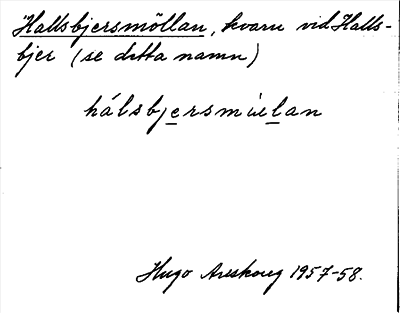 "Hallsbjersmöllan, kvarn vid Halls-
bjer (se detta namn)
hálsbjersmı́elan
Hugo Areskoug 1957-58.